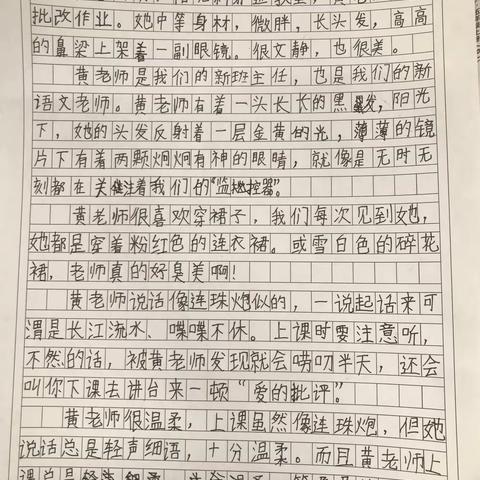 批改作业。她中等身材，微胖，长头发，高高
的鼻梁上架着一副眼镜。很文静，也很美。
黄老师是我们的新班主任，也是我们的新
语文老师。黄老师有着一头长长的黑发，阳光
下，她的头发反射着一层金黄的光，薄薄的镜
片下有着两颗炯炯有神的眼睛，就像是无时无
刻都在关注着我们的“监控器”。
黄老师很喜欢穿裙子，我们每次见到她，
她都是穿着粉红色的连衣裙。或雪白色的碎花
裙，老师真的好臭美啊！
黄老师说话像连珠炮似的，一说起话来可
谓是长江流水、喋喋不休。上课时要注意听，
不然的话，被黄老师发现就会唠叨半天，还会
叫你下课去讲台来一顿“爱的批评”。
黄老师很温柔，上课虽然像连珠炮，但她
说话总是轻声细语，十分温柔。而且黄老师上
课总是